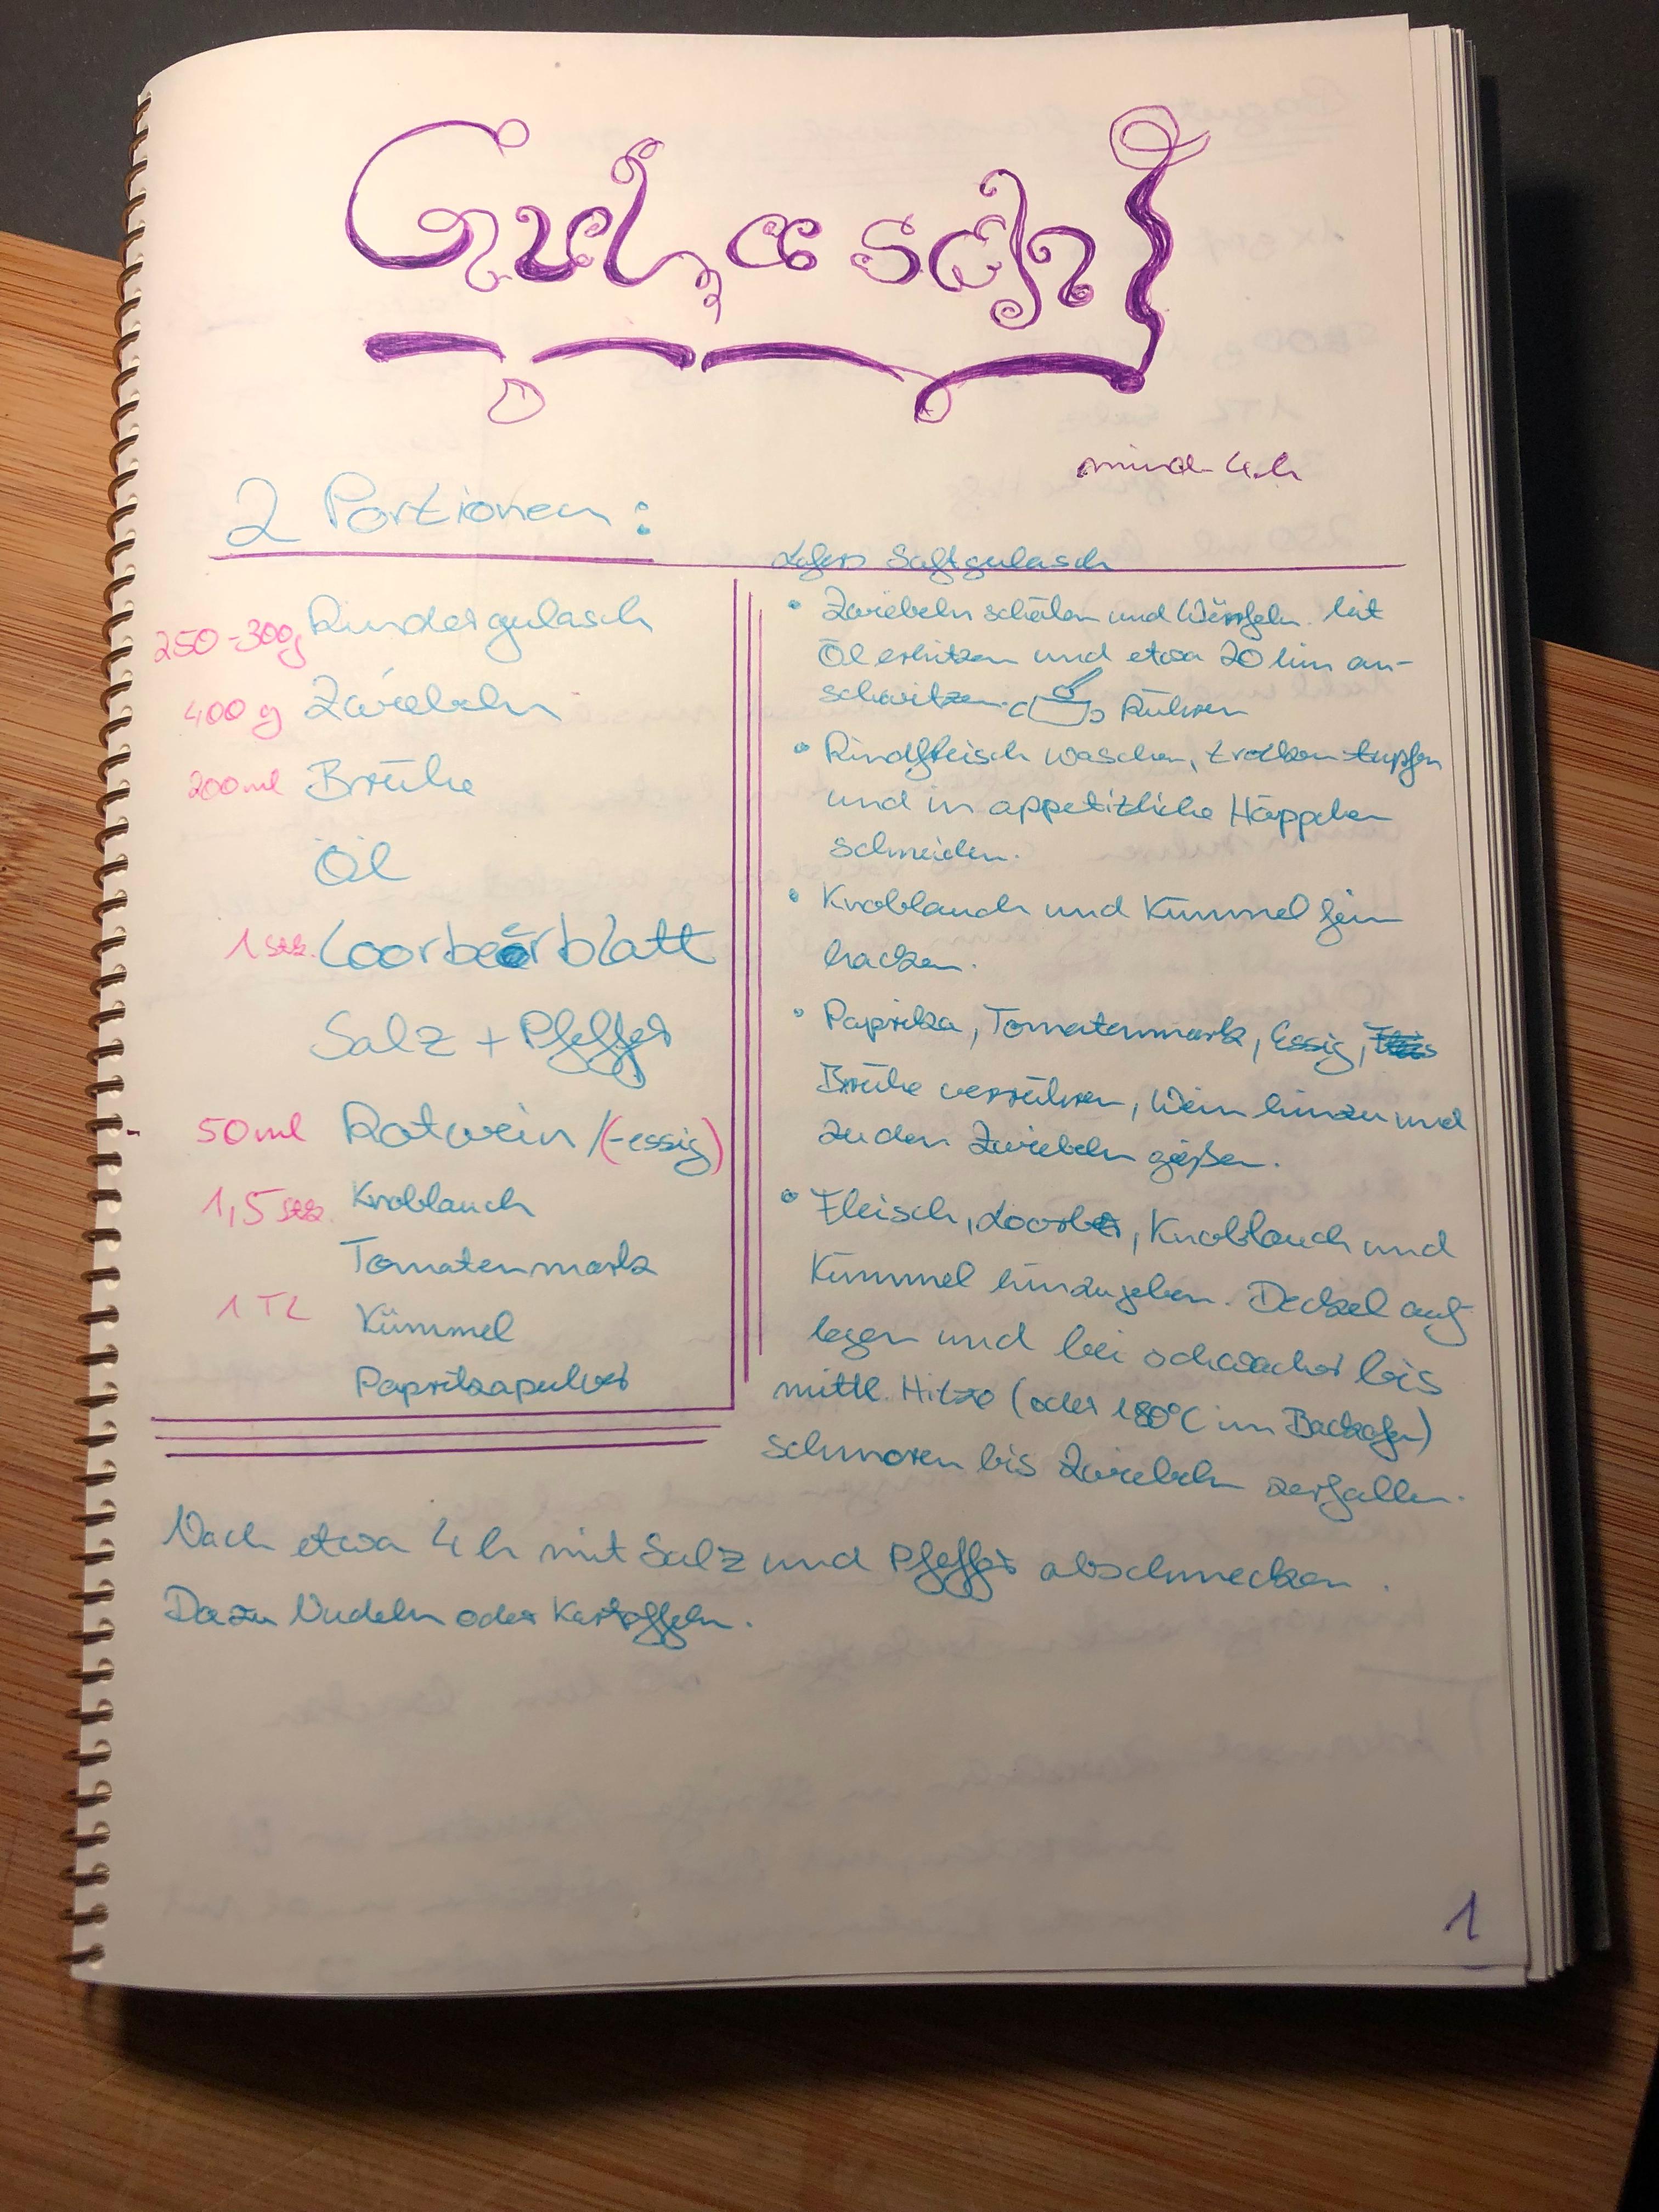 Gulasch
mind. 4 h
2 Portionen:
250-300g Rindergulasch
400 g Zwiebeln
200ml Brühe
Öl
1 Stk. Loorbeerblatt
Salz + Pfeffer
50 ml Rotwein /(-essig)
1,5 Stk. Knoblauch
Tomatenmark
1 TL Kümmel
Paprikapulver
Lafers Saftgulasch
• Zwiebeln schälen und Würfeln. Mit
Öl erhitzen und etwa 20 Min an-
schwitzen. Rühren
• Rindfleisch waschen, trocken tupfen
und in appetitliche Häppchen
schneiden.
• Knoblauch und Kümmel fein
hacken.
• Paprika, Tomatenmark, Essig,
Brühe verrühren, Wein hinzu und
zu den Zwiebeln gießen.
• Fleisch, Loorber, Knoblauch und
Kümmel hinzugeben. Deckel auf
legen und bei schwacher bis
mittl. Hitze (oder 180°C im Backofen)
schmoren bis Zwiebeln zerfallen.
Nach etwa 4 h mit Salz und Pfeffer abschmecken.
Dazu Nudeln oder Kartoffeln.
1